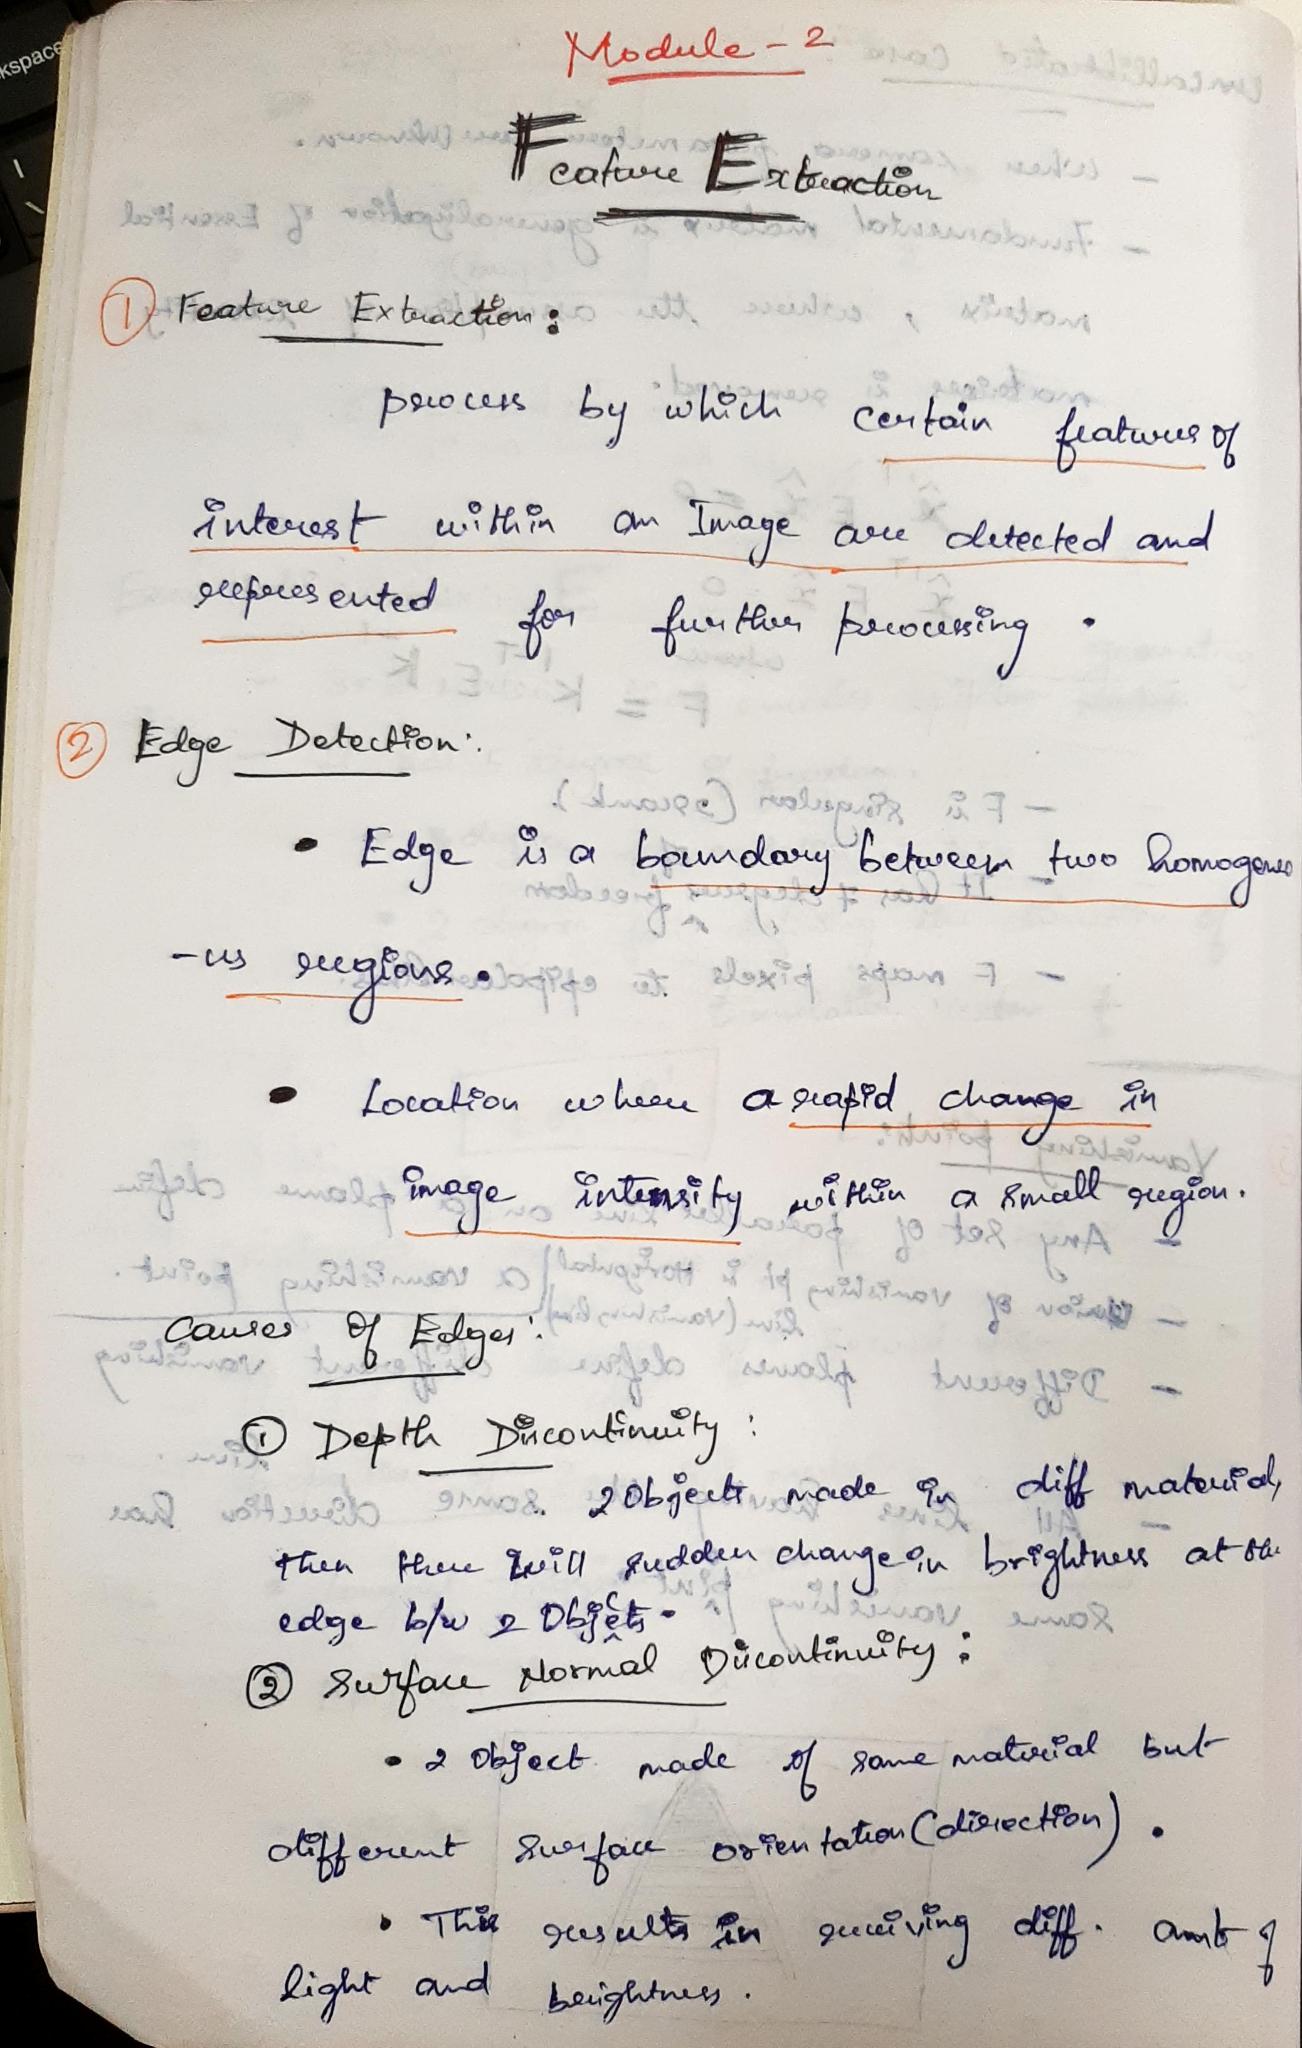 Module - 2
Feature Extraction
① Feature Extraction :
process by which certain features of
interest within an Image are detected and
represented for further processing .
② Edge Detection :
• Edge is a boundary between two homogeneo
-us regions .
• Location where a rapid change in
image intensity within a small region .
Causes of Edges :
① Depth Discontinuity :
2 Objects made in diff material,
then there will sudden change in brightness at the
edge b/w 2 Objects .
② Surface Normal Discontinuity :
• 2 Object made of same material but
different surface orientation (direction) .
• This results in receiving diff. amt of
light and brightness .